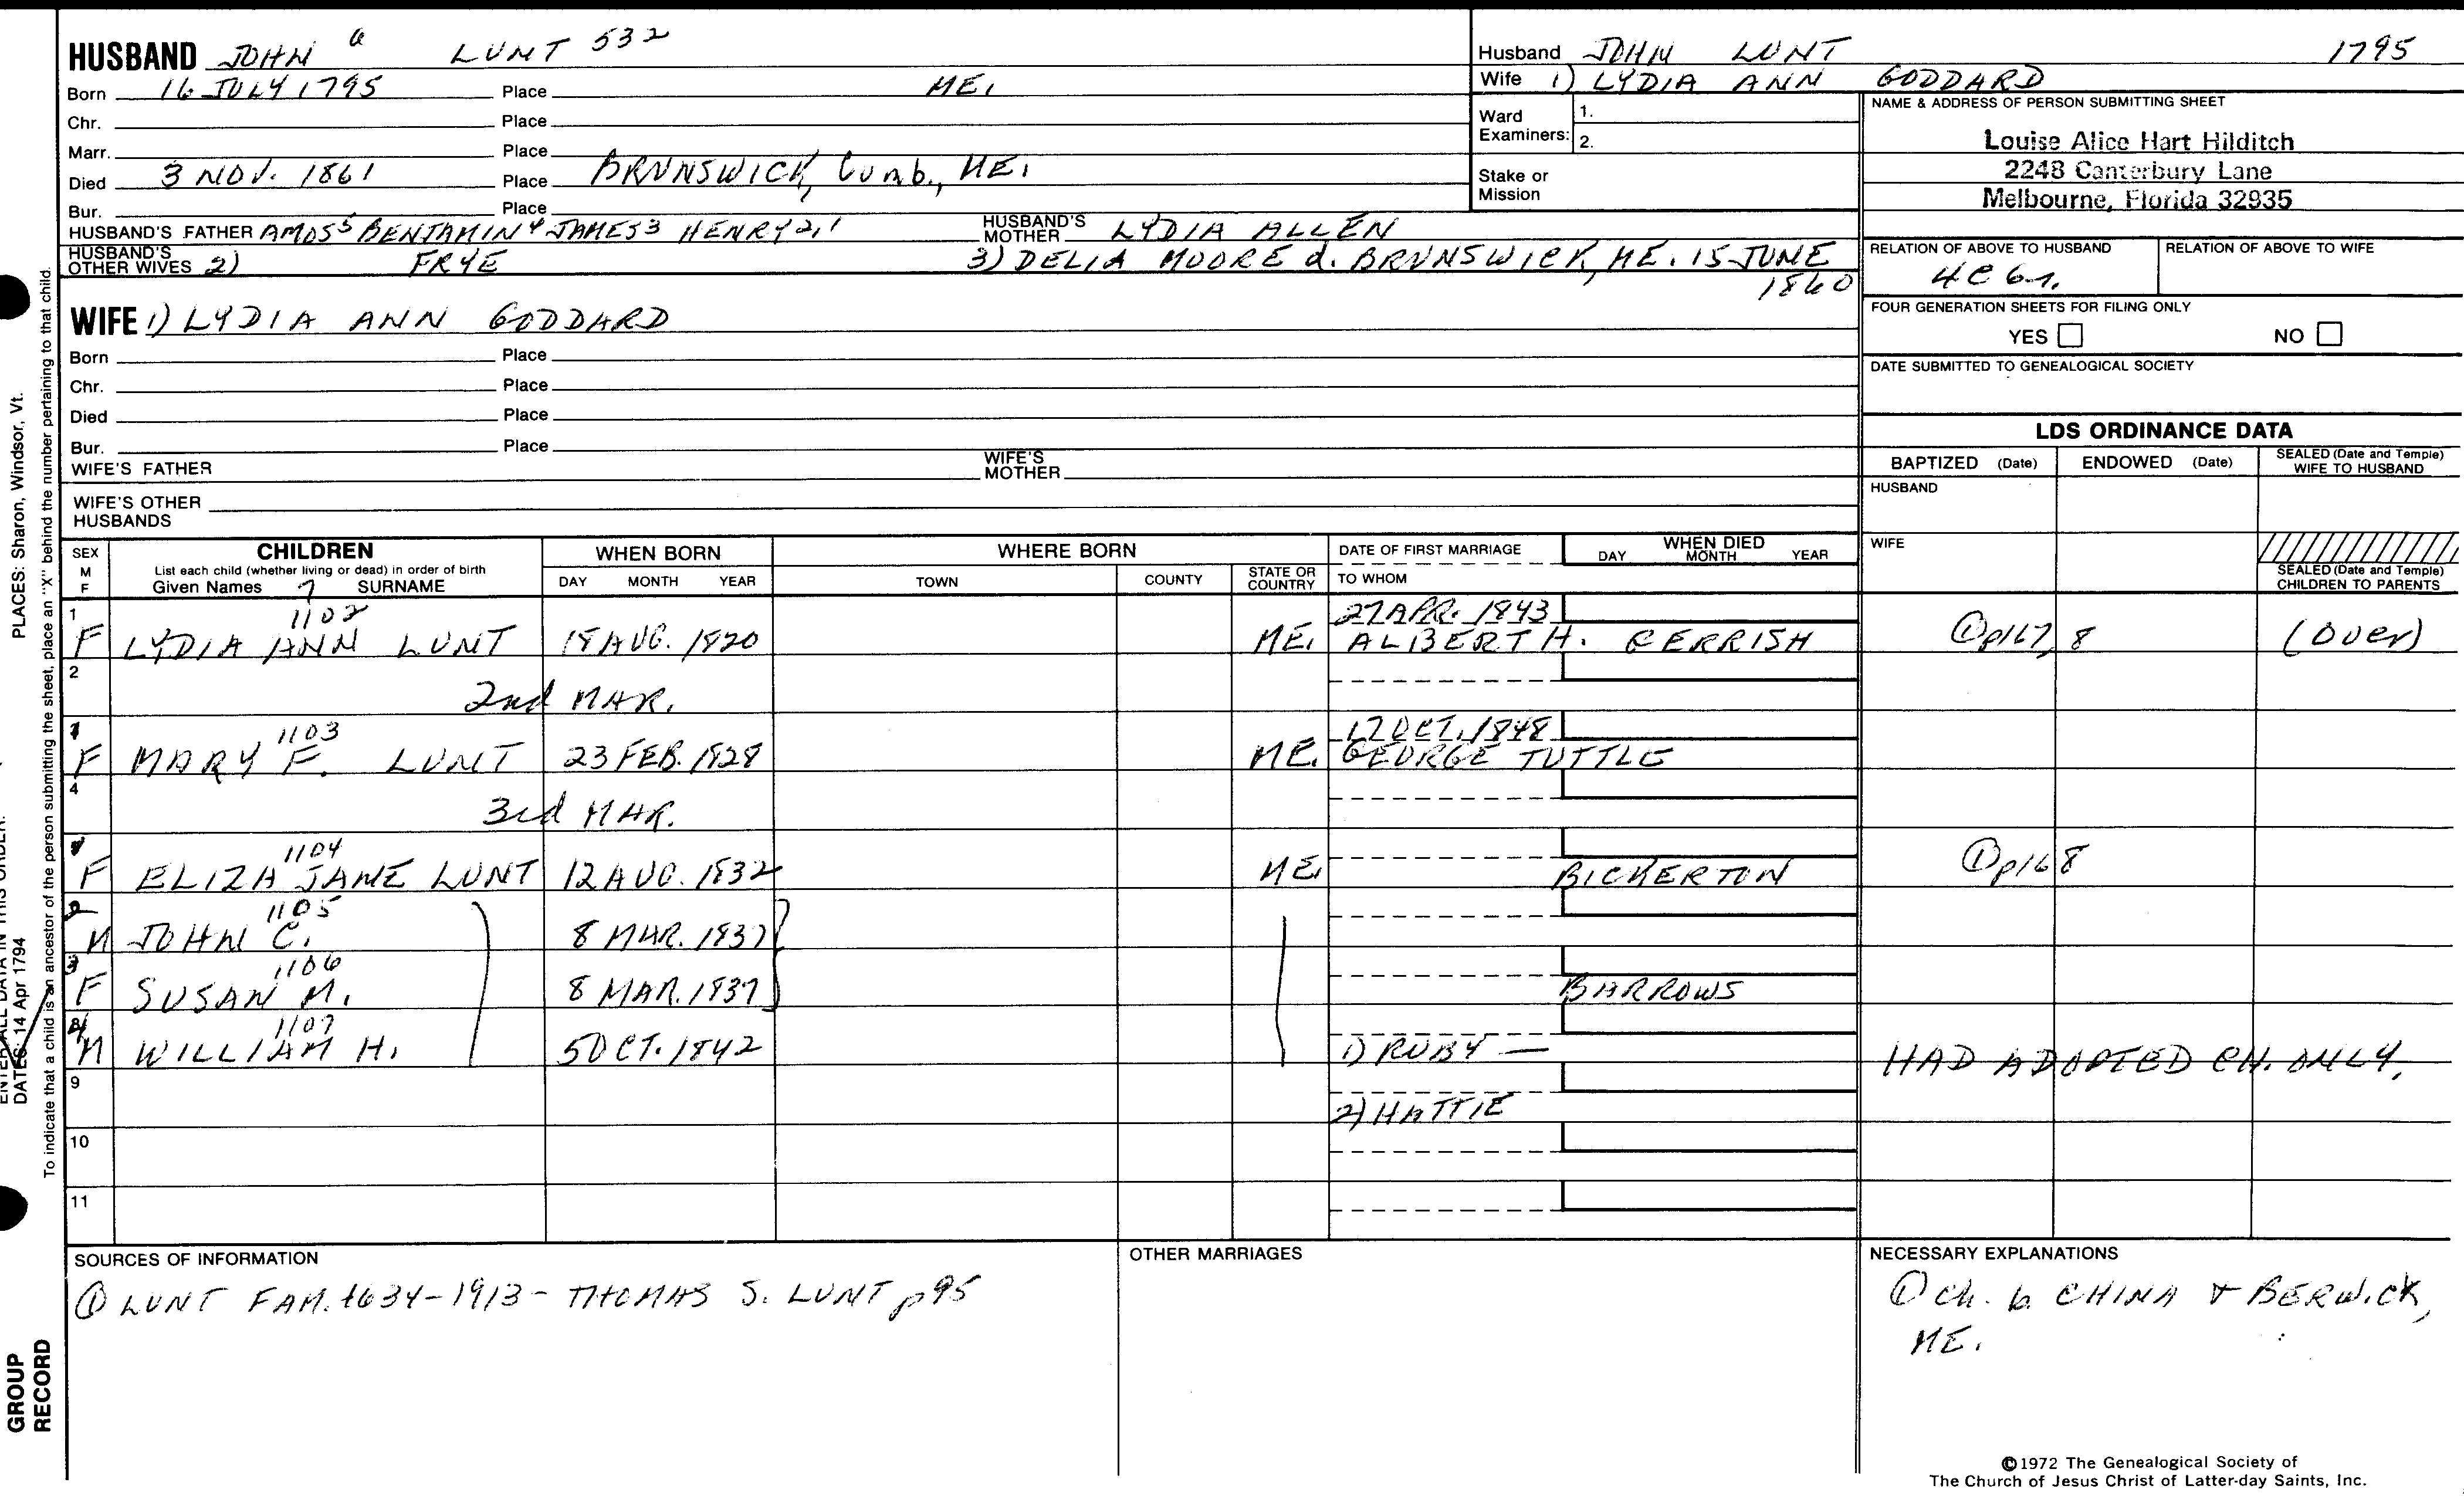 HUSBAND JOHN 6 LUNT 532
Born 16 JULY 1795 Place ME.
Chr. Place
Marr. Place
Died 3 NOV. 1861 Place BRUNSWICK, Cumb., ME.
Bur. Place
HUSBAND'S FATHER AMOS5 BENJAMIN4 JAMES3 HENRY2,1 HUSBAND'S MOTHER LYDIA ALLEN
HUSBAND'S OTHER WIVES 2) FRYE 3) DELIA MOORE d. BRUNSWICK, ME. 15 JUNE
1860
Husband JOHN LUNT 1795
Wife 1) LYDIA ANN GODDARD
Ward Examiners: 1.
2.
Stake or Mission
NAME & ADDRESS OF PERSON SUBMITTING SHEET
Louise Alice Hart Hilditch
2248 Canterbury Lane
Melbourne, Florida 32935
RELATION OF ABOVE TO HUSBAND RELATION OF ABOVE TO WIFE
4C 6r.
FOUR GENERATION SHEETS FOR FILING ONLY
YES NO
DATE SUBMITTED TO GENEALOGICAL SOCIETY
WIFE 1) LYDIA ANN GODDARD
Born Place
Chr. Place
Died Place
Bur. Place
WIFE'S FATHER WIFE'S MOTHER
WIFE'S OTHER HUSBANDS
LDS ORDINANCE DATA
BAPTIZED (Date) ENDOWED (Date) SEALED (Date and Temple) WIFE TO HUSBAND
HUSBAND
WIFE
SEALED (Date and Temple) CHILDREN TO PARENTS
SEX M F CHILDREN WHEN BORN WHERE BORN DATE OF FIRST MARRIAGE WHEN DIED
List each child (whether living or dead) in order of birth
Given Names 7 SURNAME DAY MONTH YEAR TOWN COUNTY STATE OR COUNTRY TO WHOM DAY MONTH YEAR
1 1102 27 APR. 1843
F LYDIA ANN LUNT 18 AUG. 1820 ME. ALBERT H. GERRISH ① p167, 8 (over)
2
2nd MAR.
1 1103 17 OCT. 1848
F MARY F. LUNT 23 FEB. 1828 ME. GEORGE TUTTLE
4
3rd MAR.
1 1104
F ELIZA JANE LUNT 12 AUG. 1832 ME. BICKERTON ① p168
2 1105
M JOHN C. 8 MAR. 1837
3 1106
F SUSAN M. 8 MAR. 1837 BARROWS
4 1107
M WILLIAM H. 5 OCT. 1842 1) RUBY — HAD ADOPTED CH. ONLY.
9
2) HATTIE
10
11
SOURCES OF INFORMATION
① LUNT FAM. 1634-1913 - THOMAS S. LUNT p95
OTHER MARRIAGES
NECESSARY EXPLANATIONS
① Ch. b. CHINA & BERWICK,
ME.
©1972 The Genealogical Society of
The Church of Jesus Christ of Latter-day Saints, Inc.
PLACES: Sharon, Windsor, Vt.
DATES: 14 Apr 1794
To indicate that a child is an ancestor of the person submitting the sheet, place an "X" behind the number pertaining to that child.
GROUP
RECORD